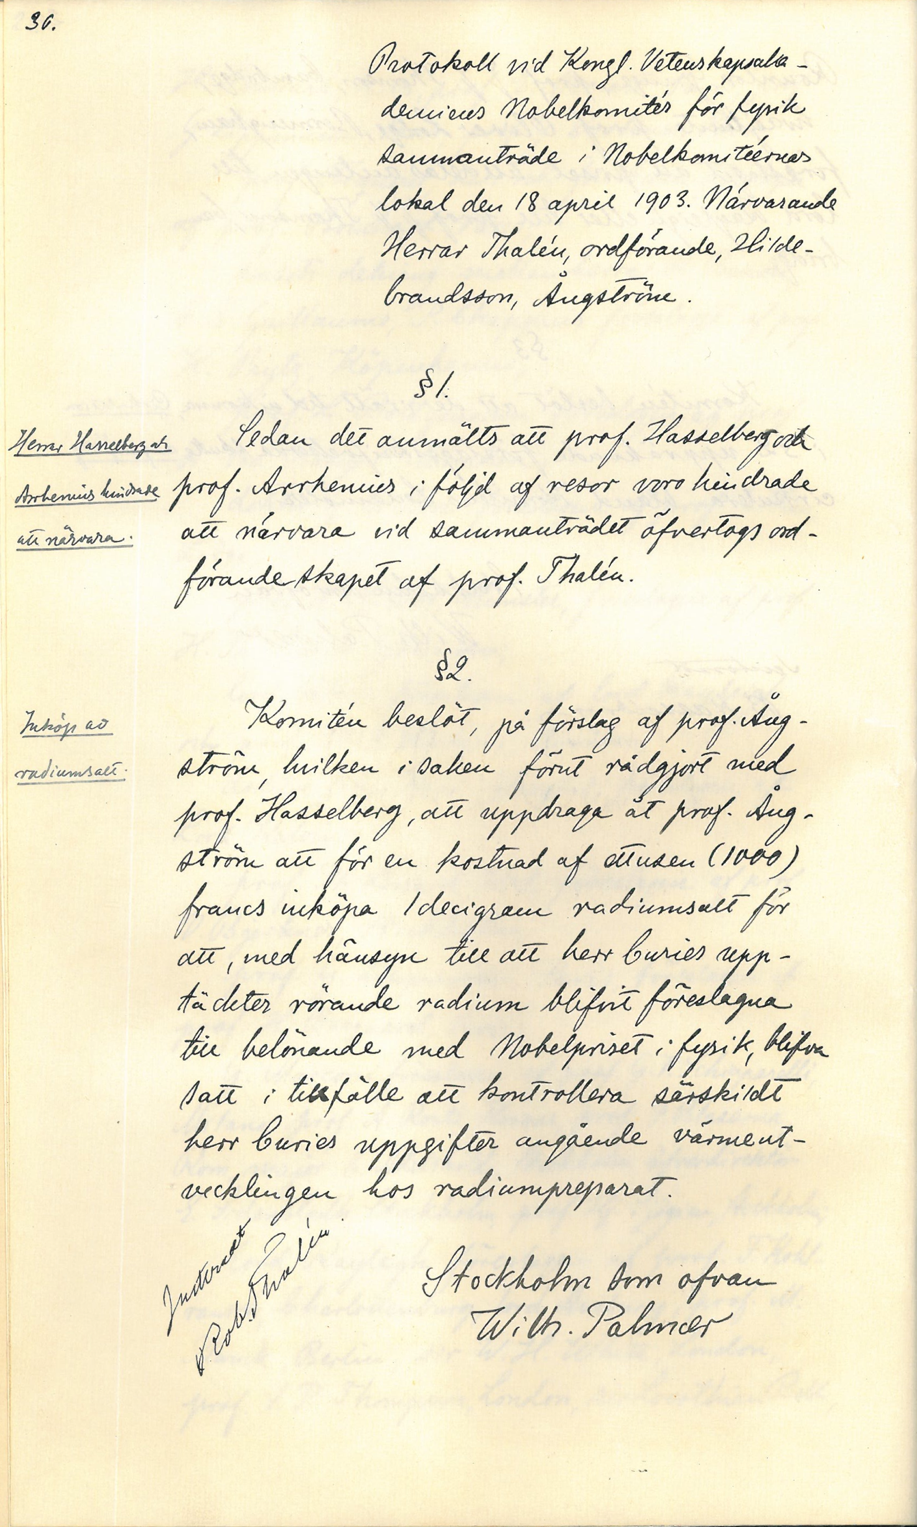 36.
Protokoll vid Kongl. Vetenskapsaka-
demiens Nobelkomités för fysik
sammanträde i Nobelkomitéernas
lokal den 18 april 1903. Närvarande
Herrar Thalén, ordförande, Hilde-
brandsson, Ångström.
§1.
Herrar Hasselberg och
Arrhenius hindrade
att närvara.
Sedan det anmälts att prof. Hasselberg och
prof. Arrhenius i följd af resor voro hindrade
att närvara vid sammanträdet öfvertogs ord-
förandeskapet af prof. Thalén.
§2.
Inköp av
radiumsalt.
Komitén beslöt, på förslag af prof. Ång-
ström, hvilken i saken förut rådgjort med
prof. Hasselberg, att uppdraga åt prof. Ång-
ström att för en kostnad af ettusen (1000)
francs inköpa 1 decigram radiumsalt för
att, med hänsyn till att herr Curies upp-
täckter rörande radium blifvit föreslagna
till belönande med Nobelpriset i fysik, blifva
satt i tillfälle att kontrollera särskildt
herr Curies uppgifter angående värmeut-
vecklingen hos radiumpreparat.
Stockholm som ofvan
Wilh. Palmær
Justerat
Rob. Thalén